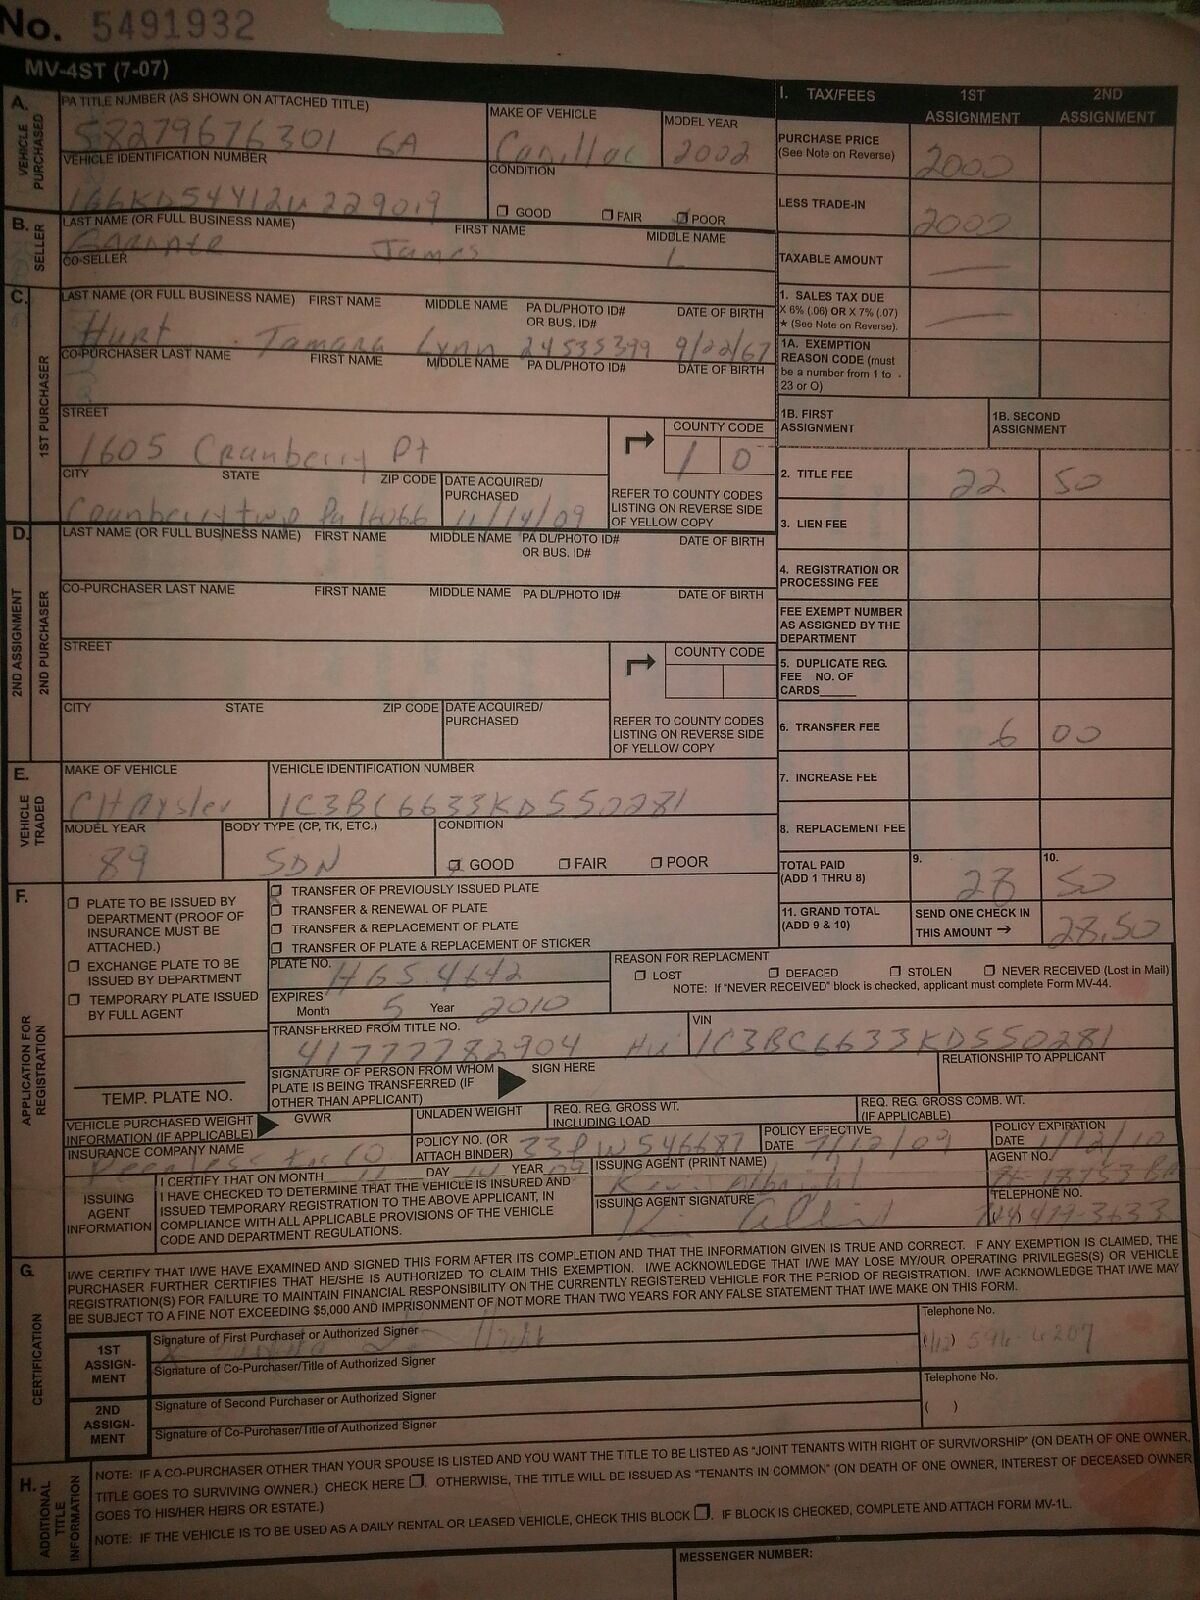 No. 5491932
MV-4ST (7-07)
A. VEHICLE PURCHASED
PA TITLE NUMBER (AS SHOWN ON ATTACHED TITLE)
58279676301 GA
MAKE OF VEHICLE
Cadillac
MODEL YEAR
2002
VEHICLE IDENTIFICATION NUMBER
CONDITION
GOOD FAIR POOR
B. SELLER
LAST NAME (OR FULL BUSINESS NAME) FIRST NAME MIDDLE NAME
James L
CO-SELLER
C. 1ST PURCHASER
LAST NAME (OR FULL BUSINESS NAME) FIRST NAME MIDDLE NAME PA DL/PHOTO ID# OR BUS. ID# DATE OF BIRTH
Hurt Tamara Lynn 24535399 9/22/67
CO-PURCHASER LAST NAME FIRST NAME MIDDLE NAME PA DL/PHOTO ID# DATE OF BIRTH
STREET
1605 Cranberry Pt
COUNTY CODE
1 0
REFER TO COUNTY CODES LISTING ON REVERSE SIDE OF YELLOW COPY
CITY STATE ZIP CODE DATE ACQUIRED/PURCHASED
Cranberry twp Pa 16066 11/14/09
D. 2ND ASSIGNMENT 2ND PURCHASER
LAST NAME (OR FULL BUSINESS NAME) FIRST NAME MIDDLE NAME PA DL/PHOTO ID# OR BUS. ID# DATE OF BIRTH
CO-PURCHASER LAST NAME FIRST NAME MIDDLE NAME PA DL/PHOTO ID# DATE OF BIRTH
STREET
COUNTY CODE
REFER TO COUNTY CODES LISTING ON REVERSE SIDE OF YELLOW COPY
CITY STATE ZIP CODE DATE ACQUIRED/PURCHASED
E. VEHICLE TRADED
MAKE OF VEHICLE
CHrysler
VEHICLE IDENTIFICATION NUMBER
1C3BC6633KD550281
MODEL YEAR
89
BODY TYPE (CP, TK, ETC.)
SDN
CONDITION
GOOD FAIR POOR
I. TAX/FEES 1ST ASSIGNMENT 2ND ASSIGNMENT
PURCHASE PRICE (See Note on Reverse) 2000
LESS TRADE-IN 2000
TAXABLE AMOUNT —
1. SALES TAX DUE X 6% (.06) OR X 7% (.07) ★ (See Note on Reverse). —
1A. EXEMPTION REASON CODE (must be a number from 1 to 23 or O)
1B. FIRST ASSIGNMENT 1B. SECOND ASSIGNMENT
2. TITLE FEE 22 50
3. LIEN FEE
4. REGISTRATION OR PROCESSING FEE
FEE EXEMPT NUMBER AS ASSIGNED BY THE DEPARTMENT
5. DUPLICATE REG. FEE NO. OF CARDS
6. TRANSFER FEE 6 00
7. INCREASE FEE
8. REPLACEMENT FEE
TOTAL PAID (ADD 1 THRU 8) 9. 28 10. 50
11. GRAND TOTAL (ADD 9 & 10) SEND ONE CHECK IN THIS AMOUNT → 28.50
F. APPLICATION FOR REGISTRATION
PLATE TO BE ISSUED BY DEPARTMENT (PROOF OF INSURANCE MUST BE ATTACHED.)
EXCHANGE PLATE TO BE ISSUED BY DEPARTMENT
TEMPORARY PLATE ISSUED BY FULL AGENT
TEMP. PLATE NO.
TRANSFER OF PREVIOUSLY ISSUED PLATE
TRANSFER & RENEWAL OF PLATE
TRANSFER & REPLACEMENT OF PLATE
TRANSFER OF PLATE & REPLACEMENT OF STICKER
PLATE NO. HGS.4642
EXPIRES Month 5 Year 2010
REASON FOR REPLACMENT
LOST DEFACED STOLEN NEVER RECEIVED (Lost in Mail)
NOTE: If "NEVER RECEIVED" block is checked, applicant must complete Form MV-44.
TRANSFERRED FROM TITLE NO.
41777782904 Hu
VIN
1C3BC6633KD550281
SIGNATURE OF PERSON FROM WHOM PLATE IS BEING TRANSFERRED (IF OTHER THAN APPLICANT)
SIGN HERE
RELATIONSHIP TO APPLICANT
VEHICLE PURCHASED WEIGHT INFORMATION (IF APPLICABLE)
GVWR
UNLADEN WEIGHT
REQ. REG. GROSS WT. INCLUDING LOAD
REQ. REG. GROSS COMB. WT. (IF APPLICABLE)
INSURANCE COMPANY NAME
Peerless Ins Co
POLICY NO. (OR ATTACH BINDER)
33PW546687
POLICY EFFECTIVE DATE 7/12/09
POLICY EXPIRATION DATE 1/12/10
ISSUING AGENT INFORMATION
I CERTIFY THAT ON MONTH 11 DAY 14 YEAR 09
I HAVE CHECKED TO DETERMINE THAT THE VEHICLE IS INSURED AND ISSUED TEMPORARY REGISTRATION TO THE ABOVE APPLICANT, IN COMPLIANCE WITH ALL APPLICABLE PROVISIONS OF THE VEHICLE CODE AND DEPARTMENT REGULATIONS.
ISSUING AGENT (PRINT NAME)
Kevin Albright
AGENT NO.
ISSUING AGENT SIGNATURE
TELEPHONE NO.
479-3633
G. CERTIFICATION
I/WE CERTIFY THAT I/WE HAVE EXAMINED AND SIGNED THIS FORM AFTER ITS COMPLETION AND THAT THE INFORMATION GIVEN IS TRUE AND CORRECT. IF ANY EXEMPTION IS CLAIMED, THE
PURCHASER FURTHER CERTIFIES THAT HE/SHE IS AUTHORIZED TO CLAIM THIS EXEMPTION. I/WE ACKNOWLEDGE THAT I/WE MAY LOSE MY/OUR OPERATING PRIVILEGES(S) OR VEHICLE
REGISTRATION(S) FOR FAILURE TO MAINTAIN FINANCIAL RESPONSIBILITY ON THE CURRENTLY REGISTERED VEHICLE FOR THE PERIOD OF REGISTRATION. I/WE ACKNOWLEDGE THAT I/WE MAY
BE SUBJECT TO A FINE NOT EXCEEDING $5,000 AND IMPRISONMENT OF NOT MORE THAN TWO YEARS FOR ANY FALSE STATEMENT THAT I/WE MAKE ON THIS FORM.
1ST ASSIGN-MENT
Signature of First Purchaser or Authorized Signer
Telephone No.
(412) 596-6207
Signature of Co-Purchaser/Title of Authorized Signer
2ND ASSIGN-MENT
Signature of Second Purchaser or Authorized Signer
Telephone No.
( )
Signature of Co-Purchaser/Title of Authorized Signer
H. ADDITIONAL TITLE INFORMATION
NOTE: IF A CO-PURCHASER OTHER THAN YOUR SPOUSE IS LISTED AND YOU WANT THE TITLE TO BE LISTED AS "JOINT TENANTS WITH RIGHT OF SURVIVORSHIP" (ON DEATH OF ONE OWNER,
TITLE GOES TO SURVIVING OWNER.) CHECK HERE. OTHERWISE, THE TITLE WILL BE ISSUED AS "TENANTS IN COMMON" (ON DEATH OF ONE OWNER, INTEREST OF DECEASED OWNER
GOES TO HIS/HER HEIRS OR ESTATE.)
NOTE: IF THE VEHICLE IS TO BE USED AS A DAILY RENTAL OR LEASED VEHICLE, CHECK THIS BLOCK. IF BLOCK IS CHECKED, COMPLETE AND ATTACH FORM MV-1L.
MESSENGER NUMBER: